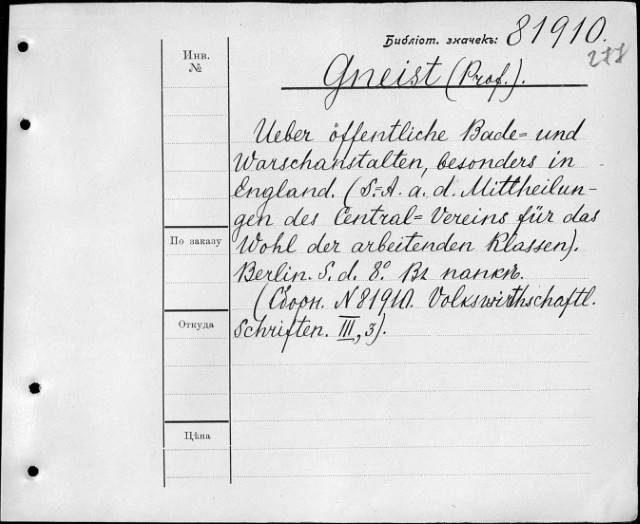 Библіот. значекъ: 81910.
277
Инв.
№
Gneist (Prof.).
Ueber öffentliche Bade= und
Warschanstalten, besonders in
England. (S.=A. a. d. Mittheilun-
gen des Central=Vereins für das
По заказу
Wohl der arbeitenden Klassen).
Berlin. S. d. 8º. Въ папкѣ.
(Сборн. N 81910. Volkswirthschaftl.
Откуда
Schriften. III, 3).
Цѣна